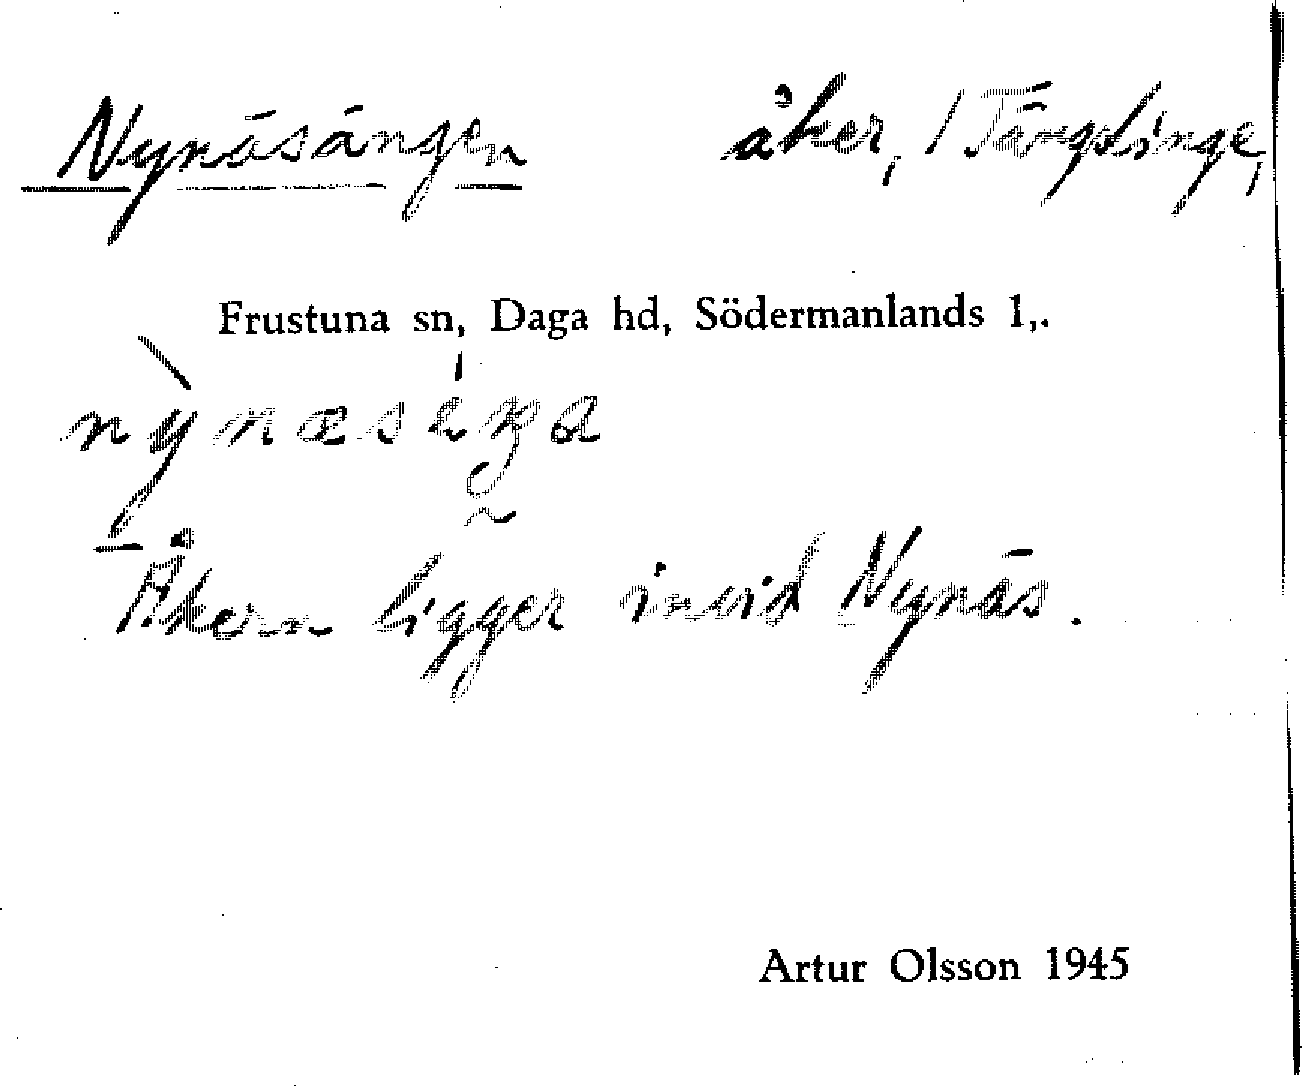 Nynäsängen åker, 1 Tängslinge,
Frustuna sn, Daga hd, Södermanlands l,.
Åkern ligger invid Nynäs.
Artur Olsson 1945